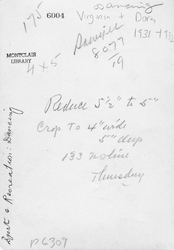 175
6004
Dancing
Virginia + Dorn
1931 +
MONTCLAIR
LIBRARY
4 x 5
8077
19
Reduce 5 1/2" to 5"
Crop To 4" wide
5" deep
133 noline
Thursday
Sport & Recreation: Dancing
P6307